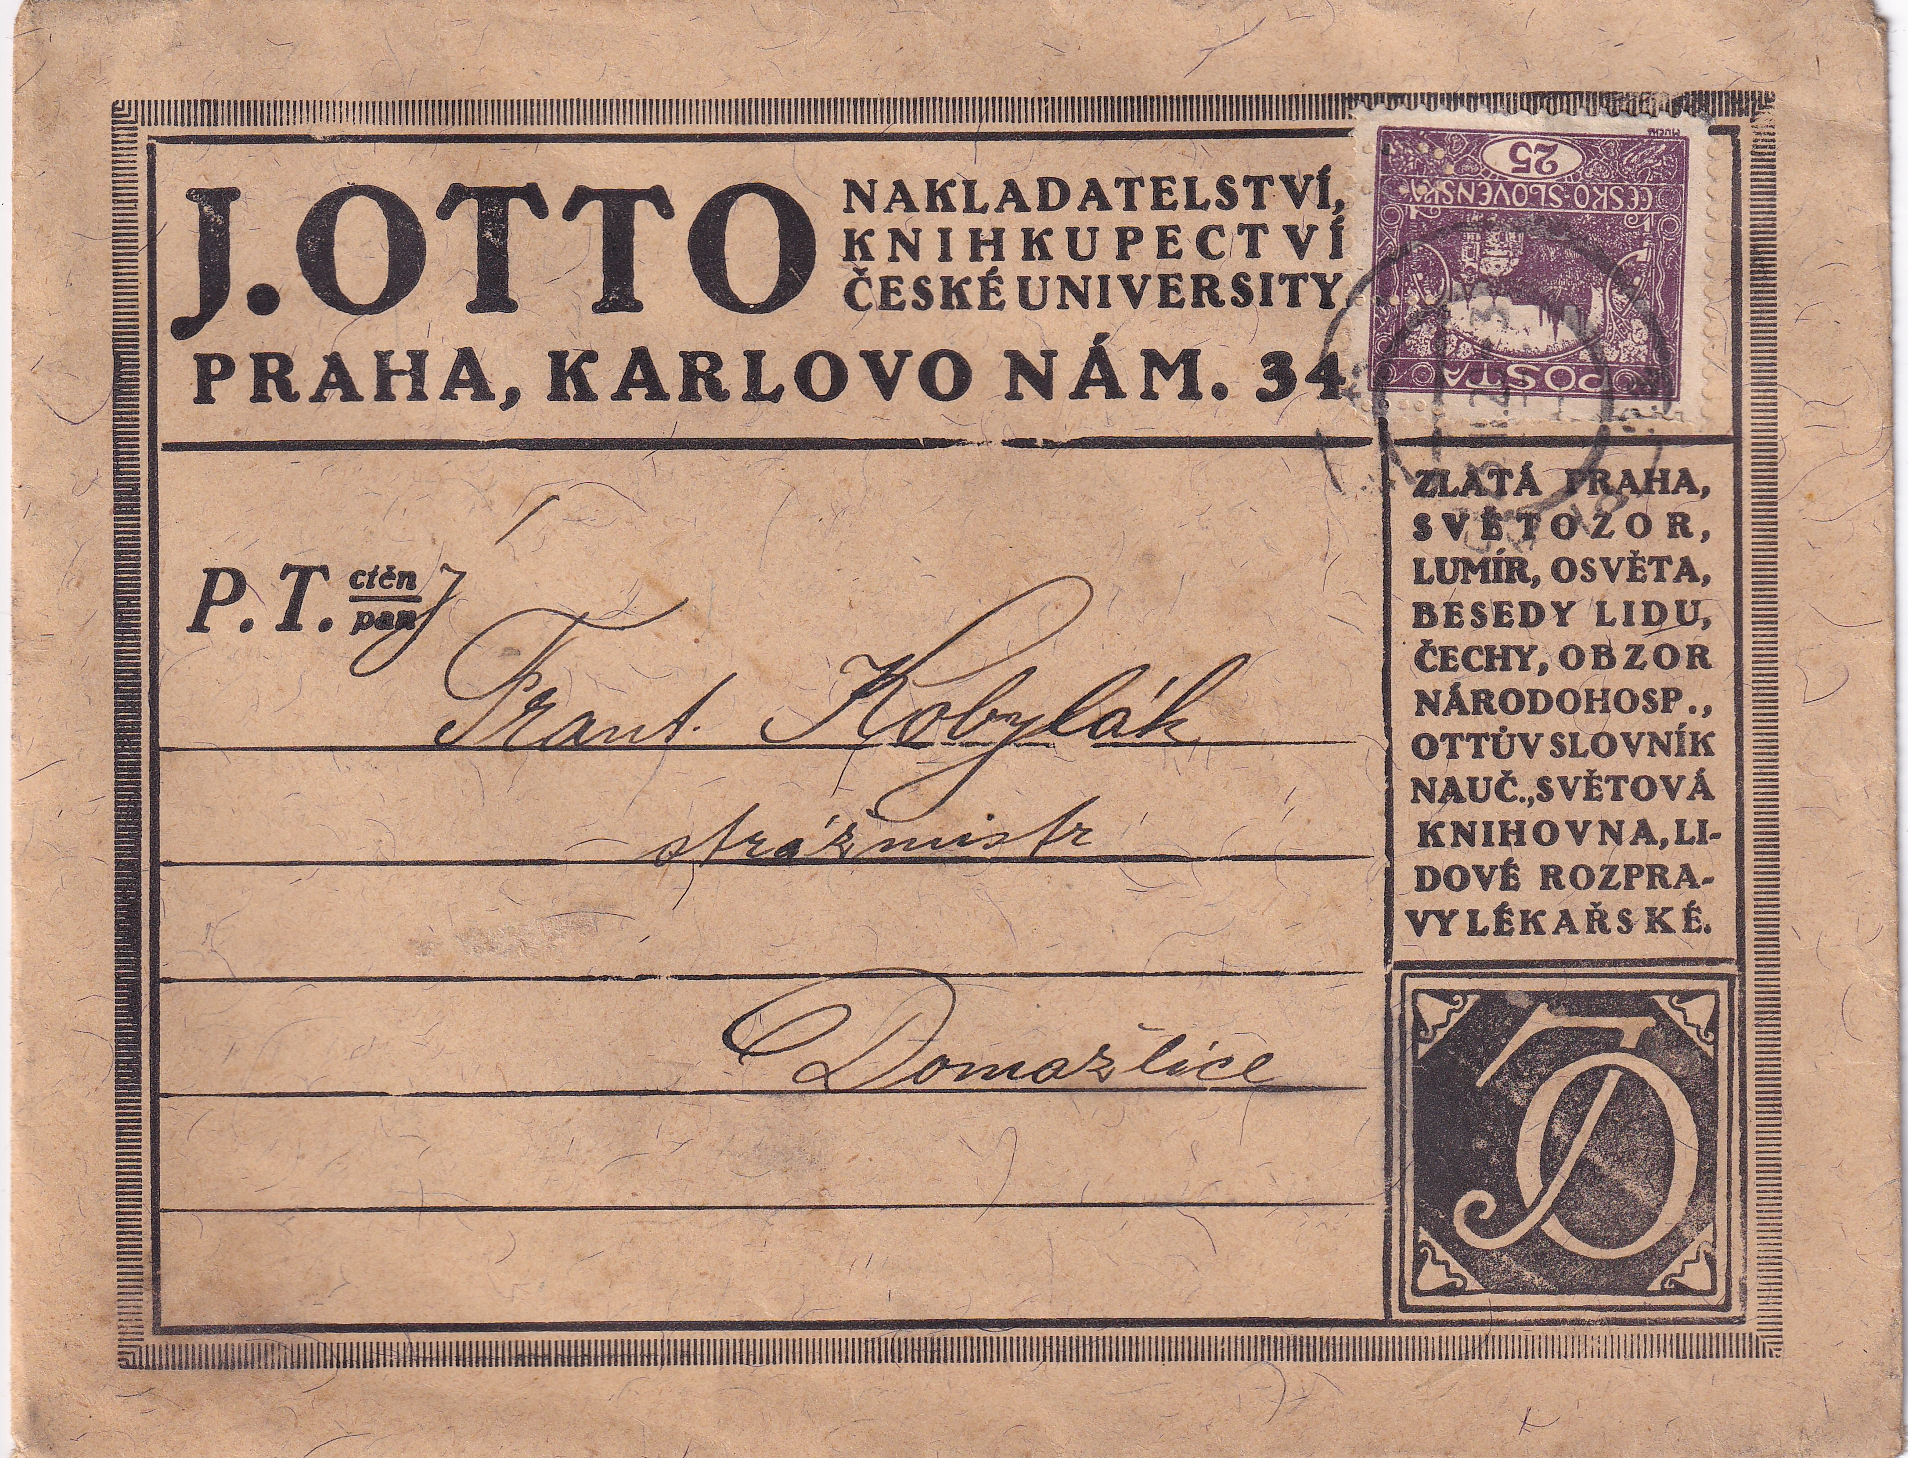 J. OTTO
NAKLADATELSTVÍ,
KNIHKUPECTVÍ
ČESKÉ UNIVERSITY
PRAHA, KARLOVO NÁM. 34
25
ČESKO-SLOVENSKÁ
POŠTA
MUCHA
P.T. ctěný
pan
Frant. Kobylák
strážmistr
Domažlice
ZLATÁ PRAHA,
SVĚTOZOR,
LUMÍR, OSVĚTA,
BESEDY LIDU,
ČECHY, OBZOR
NÁRODOHOSP.,
OTTŮV SLOVNÍK
NAUČ., SVĚTOVÁ
KNIHOVNA, LI-
DOVÉ ROZPRA-
VY LÉKAŘSKÉ.
JO